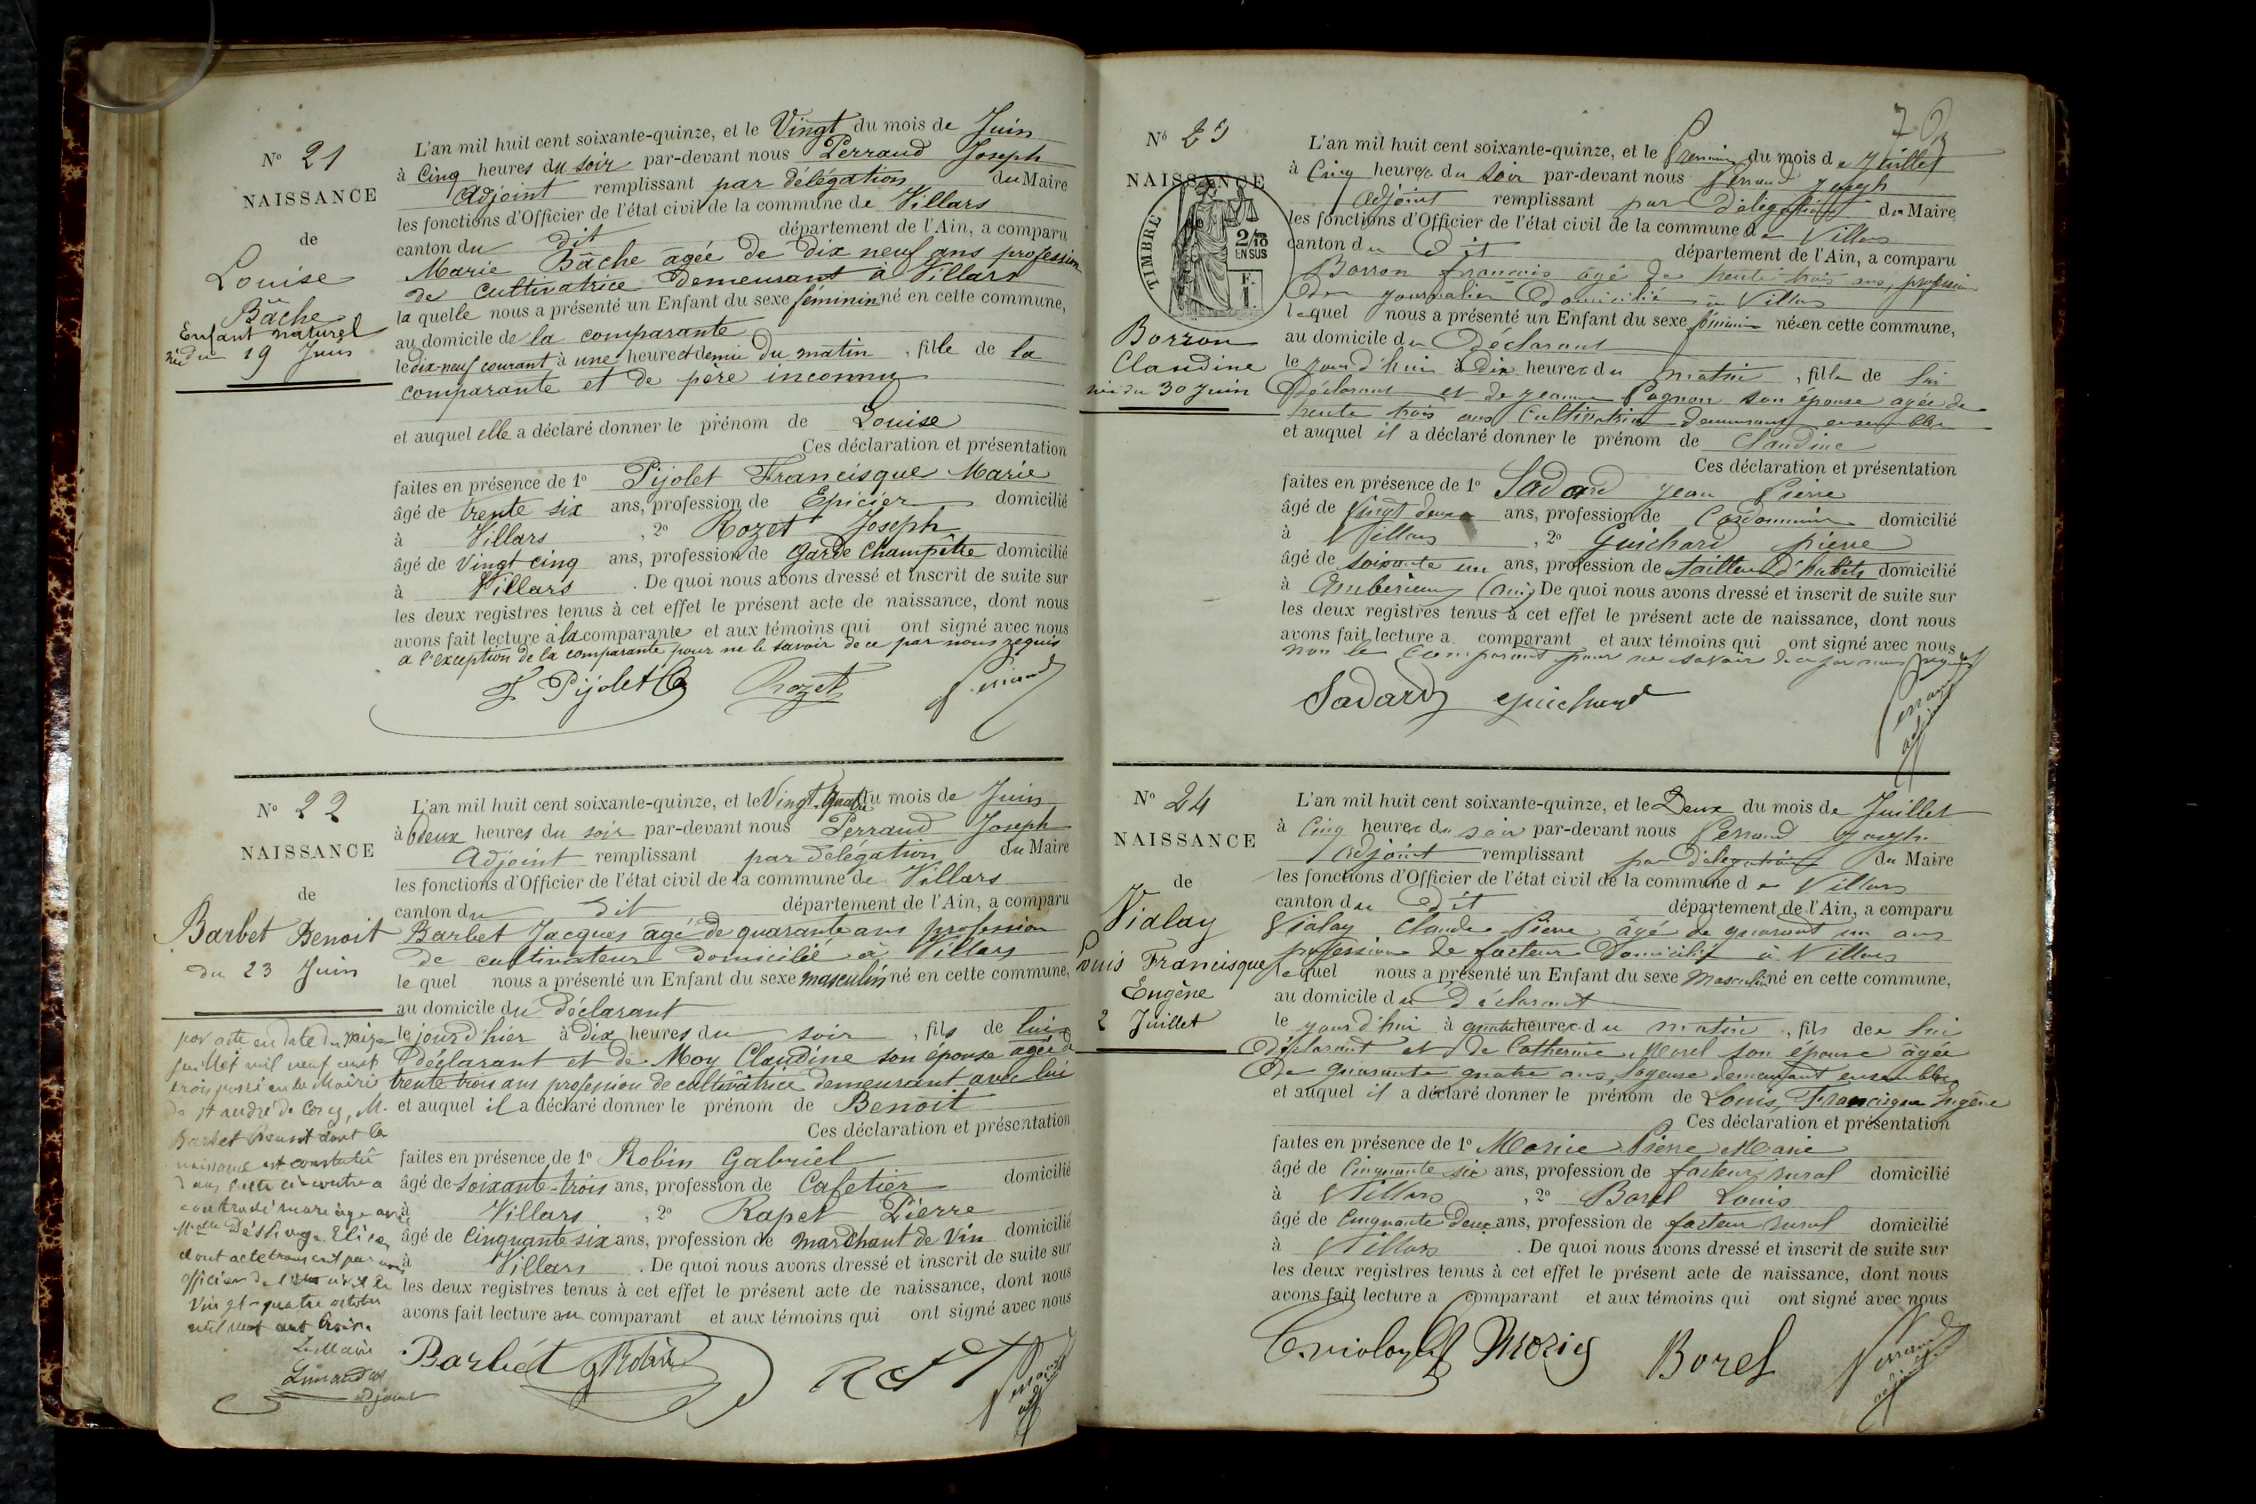 N° 21
NAISSANCE
de
Louise
Bâche
Enfant naturel
née du 19 Juin
L'an mil huit cent soixante-quinze, et le Vingt du mois de Juin
à Cinq heures du soir par-devant nous Perraud Joseph
Adjoint remplissant par délégation du Maire
les fonctions d'Officier de l'état civil de la commune de Villars
canton du dit département de l'Ain, a comparu
Marie Bâche agée de dix neuf ans profession
de cultivatrice demeurant à Villars
la quelle nous a présenté un Enfant du sexe féminin né en cette commune,
au domicile de la comparante
le dix-neuf courant à une heure et demie du matin, fille de la
comparante et de père inconnu
et auquel elle a déclaré donner le prénom de Louise
Ces déclaration et présentation
faites en présence de 1° Pijolet Francisque Marie
âgé de trente six ans, profession de Epicier domicilié
à Villars, 2° Rozet Joseph
âgé de Vingt cinq ans, profession de garde Champêtre domicilié
à Villars. De quoi nous avons dressé et inscrit de suite sur
les deux registres tenus à cet effet le présent acte de naissance, dont nous
avons fait lecture à la comparante et aux témoins qui ont signé avec nous
a l'exception de la comparante pour ne le savoir de ce par nous requis
F Pijolet Rozet Perraud
N° 22
NAISSANCE
de
Barbet Benoit
du 23 Juin
par acte en date du
juillet mil neuf cent
trois passé en la Mairie
de St andré de Corcy, M.
Barbet Benoit dont la
naissance est constatée
dans l'acte ci-contre a
contracté mariage avec
Melle Elisa
dont acte transcrit par nous
officier de l'état civil le
Vingt-quatre octobre
mil neuf cent trois.
Le Maire
adjoint
L'an mil huit cent soixante-quinze, et le Vingt-quatre du mois de Juin
à deux heures du soir par-devant nous Perraud Joseph
Adjoint remplissant par délégation du Maire
les fonctions d'Officier de l'état civil de la commune de Villars
canton du dit département de l'Ain, a comparu
Barbet Jacques agé de quarante ans profession
de cultivateur domicilié à Villars
le quel nous a présenté un Enfant du sexe masculin né en cette commune,
au domicile du déclarant
le jour d'hier à dix heures du soir, fils de lui
déclarant et de Moy Claudine son épouse agée de
trente trois ans profession de cultivatrice demeurant avec lui
et auquel il a déclaré donner le prénom de Benoit
Ces déclaration et présentation
faites en présence de 1° Robin Gabriel
âgé de soixante-trois ans, profession de Cafetier domicilié
à Villars, 2° Rapet Pierre
âgé de Cinquante six ans, profession de marchant de Vin domicilié
à Villars. De quoi nous avons dressé et inscrit de suite sur
les deux registres tenus à cet effet le présent acte de naissance, dont nous
avons fait lecture au comparant et aux témoins qui ont signé avec nous
Barbet Robin Perraud
N° 23
NAISSANCE
TIMBRE
2/10
EN SUS
F.
1.
Borron
Claudine
née du 30 Juin
L'an mil huit cent soixante-quinze, et le Premier du mois de Juillet
à Cinq heures du soir par-devant nous Perraud Joseph
Adjoint remplissant par délégation du Maire
les fonctions d'Officier de l'état civil de la commune de Villars
canton du Dit département de l'Ain, a comparu
Borron françois agé de trente trois ans, profession
de journalier Domicilié à Villars
lequel nous a présenté un Enfant du sexe féminin née en cette commune,
au domicile du Déclarant
le jour d'hui à Dix heures du matin, fille de lui
Déclarant et de jeanne Pagnon son épouse agée de
trente trois ans Cultivatrice demeurant ensemble
et auquel il a déclaré donner le prénom de Claudine
Ces déclaration et présentation
faites en présence de 1° Sadard Jean Pierre
âgé de Vingt deux ans, profession de Cordonnier domicilié
à Villars, 2° Guichard pierre
âgé de soixante un ans, profession de tailleur d'habits domicilié
à Ambérieux (ain). De quoi nous avons dressé et inscrit de suite sur
les deux registres tenus à cet effet le présent acte de naissance, dont nous
avons fait lecture a comparant et aux témoins qui ont signé avec nous
non le Comparant pour ne savoir de ce par nous requis
Sadard guichard Perraud
adjoint
N° 24
NAISSANCE
de
Vialay
Louis Francisque
Eugène
2 Juillet
L'an mil huit cent soixante-quinze, et le Deux du mois de Juillet
à Cinq heures du soir par-devant nous Perraud Joseph
Adjoint remplissant par délégation du Maire
les fonctions d'Officier de l'état civil de la commune de Villars
canton du Dit département de l'Ain, a comparu
Vialay Claude Pierre âgé de quarant un ans
profession de facteur Domicilié à Villars
lequel nous a présenté un Enfant du sexe Masculin né en cette commune,
au domicile du Déclarant
le jour d'hui à quatre heures du matin, fils de lui
Déclarant et de Catherine Morel son épouse âgée
De quarante quatre ans, demeurant ensemble
et auquel il a déclaré donner le prénom de Louis, Francisque Eugène
Ces déclaration et présentation
faites en présence de 1° Morie Pierre Marie
âgé de Cinquante six ans, profession de facteur rural domicilié
à Villars, 2° Borel Louis
âgé de Cinquante Deux ans, profession de facteur rural domicilié
à Villars. De quoi nous avons dressé et inscrit de suite sur
les deux registres tenus à cet effet le présent acte de naissance, dont nous
avons fait lecture a comparant et aux témoins qui ont signé avec nous
C. vialay Morie Borel Perraud
adjoint